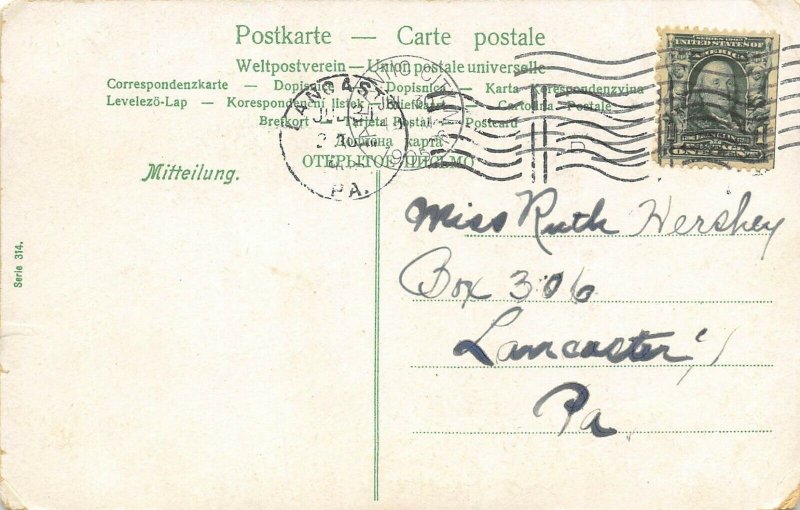 Postkarte — Carte postale
Weltpostverein — Union postale universelle
Correspondenzkarte — Dopisnice — Dopisnica — Karta Korespondenzyina
Levelező-Lap — Korespondenční listek — Briefkart — Cartolina Postale
Brefkort — Tarjeta Postal — Postcard
карта
ОТКРЫТОЕ ПИСЬМО
LANCAST
PA.
SERIES 1902
UNITED STATES OF
AMERICA
Mitteilung.
Serie 314.
Miss Ruth Hershey
Box 306
Lancaster,
Pa.